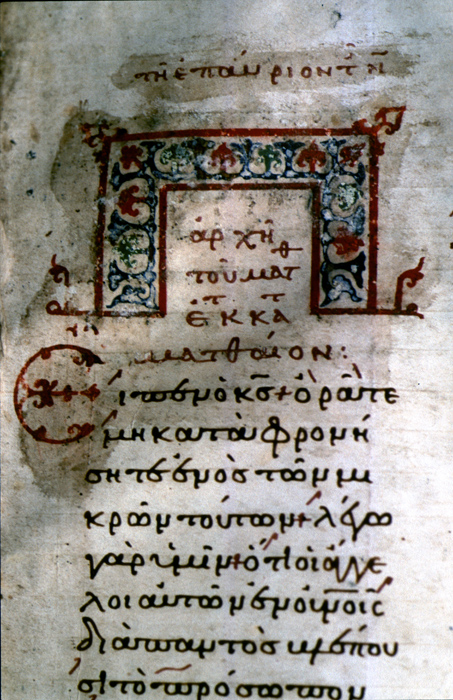 τῆ ἐπαύριον τ ν
ἀρχὴ
τοῦ ματθ
ἐκ κα τ τ
ματθαῖον:
εἶπεν ὁ κς + ὁρᾶτε
μὴ καταφρονή
σητε ἑνὸς τῶν μι
κρῶν τούτων + λέγω
γὰρ ὑμῖν + ὅτι οἱ ἄγγε
λοι αὐτῶν ἐν οὐνοῖς
διὰ παντὸς βλέπου
σι τὸ πρόσωπον